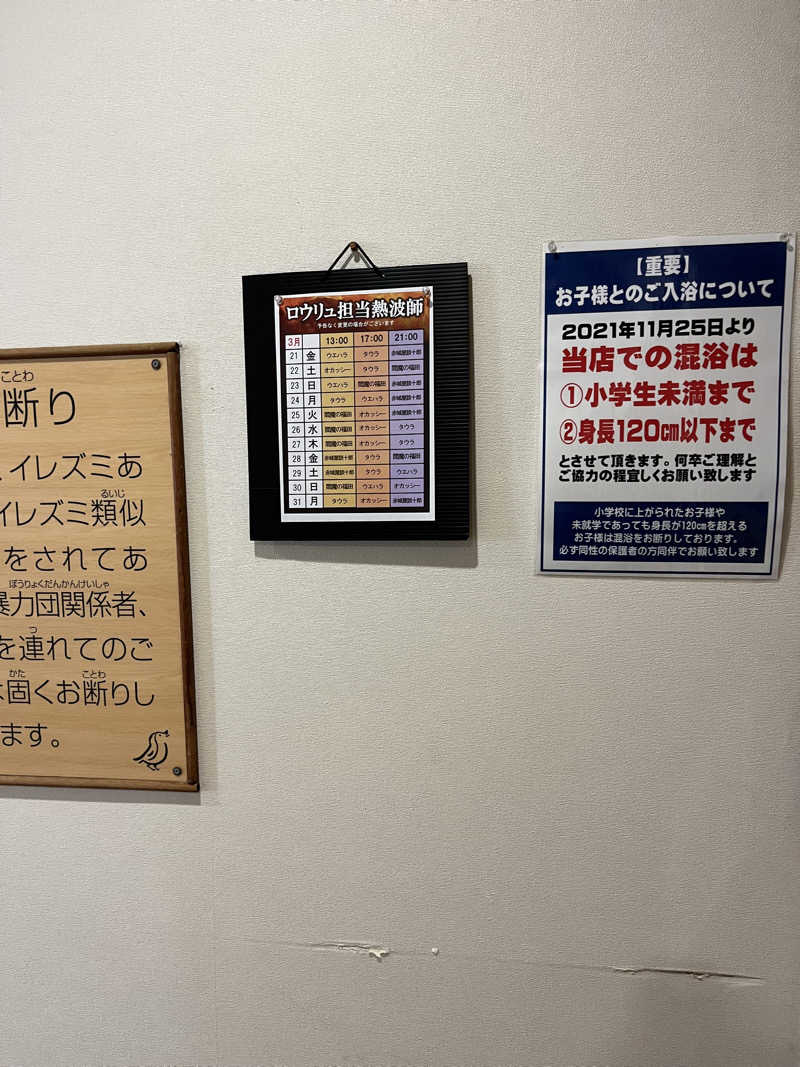 ことわ
断り
、イレズミあ
イレズミ類似
るいじ
をされてあ
ぼうりょくだんかんけいしゃ
暴力団関係者、
を連れてのご
つ
固くお断りし
かた ことわ
ます。
ロウリュ担当熱波師
予告なく変更の場合がございます
3月 13:00 17:00 21:00
21 金 ウエハラ タウラ 赤城屋談十郎
22 土 オカッシー タウラ 閻魔の福田
23 日 ウエハラ 閻魔の福田 赤城屋談十郎
24 月 タウラ ウエハラ 赤城屋談十郎
25 火 閻魔の福田 オカッシー 赤城屋談十郎
26 水 閻魔の福田 オカッシー タウラ
27 木 閻魔の福田 オカッシー タウラ
28 金 赤城屋談十郎 タウラ 閻魔の福田
29 土 赤城屋談十郎 タウラ ウエハラ
30 日 閻魔の福田 ウエハラ オカッシー
31 月 タウラ オカッシー 赤城屋談十郎
【重要】
お子様とのご入浴について
2021年11月25日より
当店での混浴は
①小学生未満まで
②身長120㎝以下まで
とさせて頂きます。何卒ご理解と
ご協力の程宜しくお願い致します
小学校に上がられたお子様や
未就学であっても身長が120㎝を超える
お子様は混浴をお断りしております。
必ず同性の保護者の方同伴でお願い致します